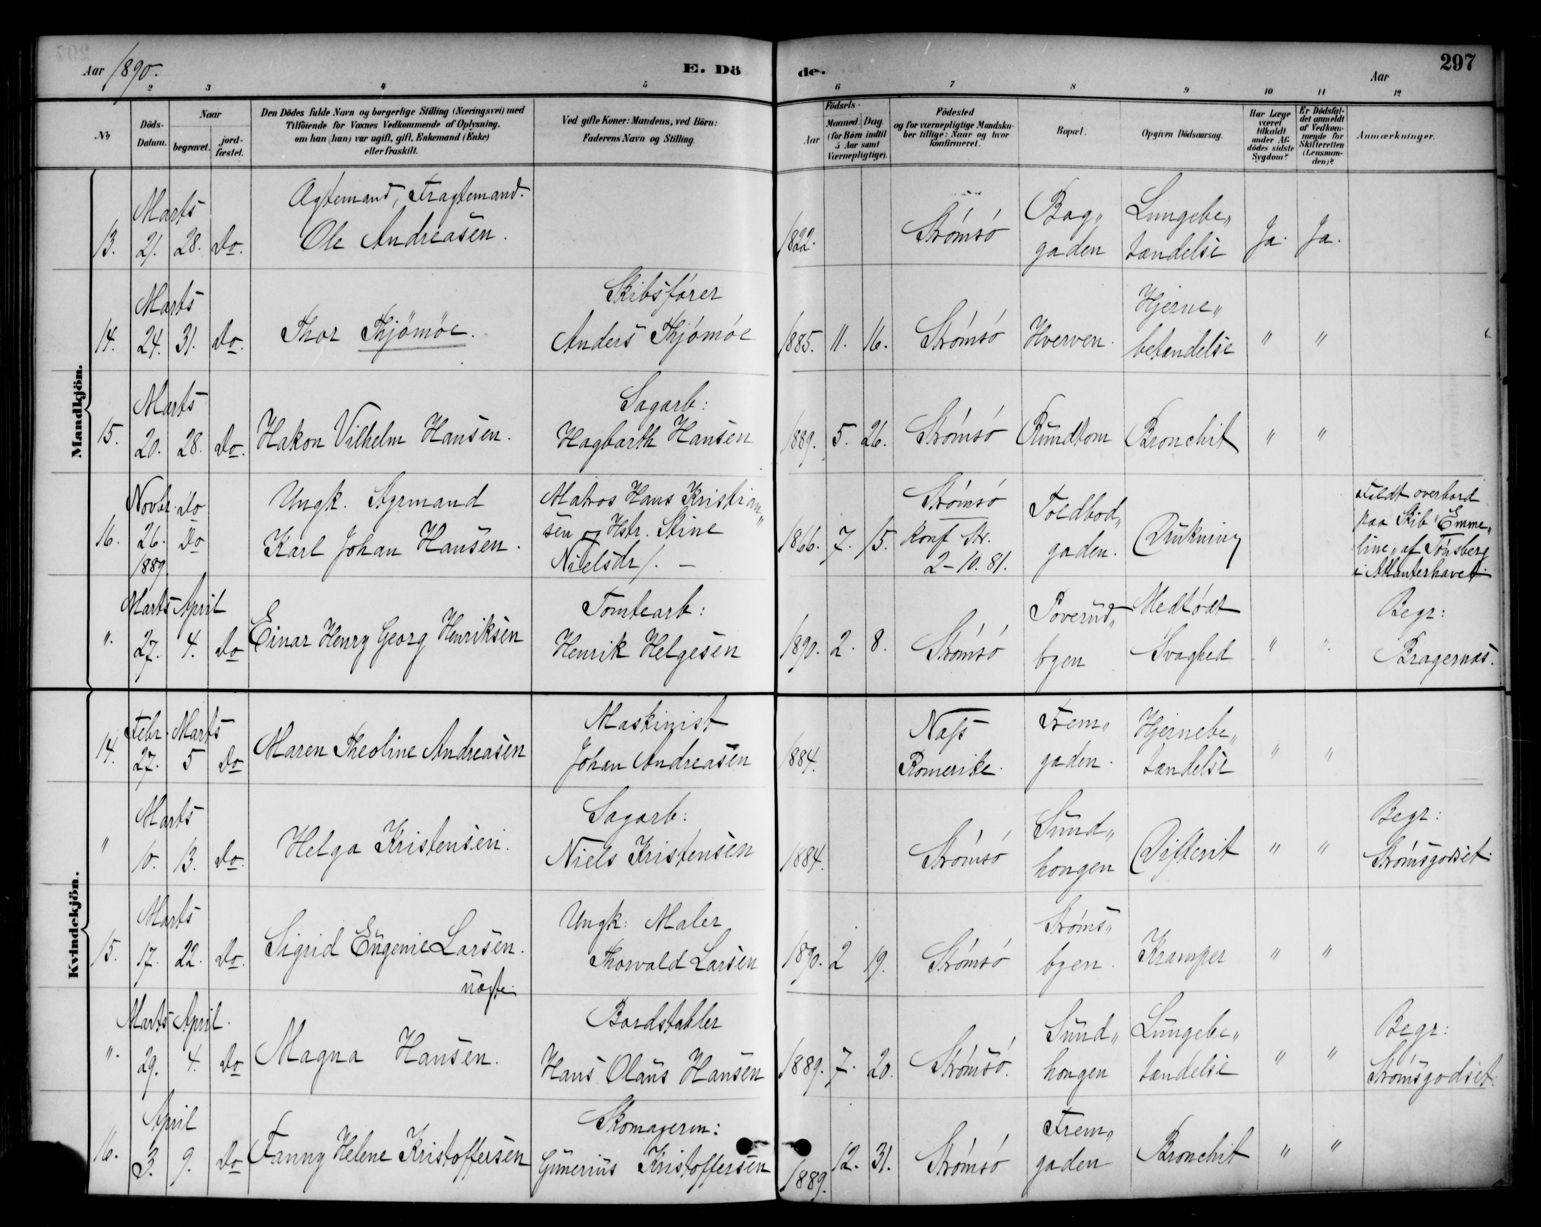 Aar 1890.
E. Dö
de.
Aar
297
2 3 4 5 6 7 8 9 10 11 12
No
Döds-Datum.
Naar
begravet.
jord-fæstet.
Den Dödes fulde Navn og borgerlige Stilling (Næringsvei) med
Tilföiende for Voxnes Vedkommende af Oplysning,
om han (hun) var ugift, gift, Enkemand (Enke)
eller fraskilt.
Ved gifte Koner: Mandens, ved Börn:
Faderens Navn og Stilling.
Födsels-
Aar
Maaned Dag
(for Börn indtil
5 Aar samt
Værnepligtige).
Födested
og for værnepligtige Mandskaber tillige: Naar og hvor
konfirmeret.
Bopæl.
Opgiven Dödsaarsag.
Har Læge
været
tilkaldt
under Afdödes sidste
Sygdom?
Er Dödsfaldet anmeldt
af Vedkommende for
Skifteretten
(Lensmanden)?
Anmærkninger.
Mandkjön.
Agtemand, Fragtemand.
13. Marts 21. 28. Do. Ole Andreasen. 1822. Strømsø Baggaden Lungebetændelse Ja. Ja.
14. Marts 24. 31. Do. Thor Thjömöe. Skibsfører
Anders Thjømøe 1885. 11. 16. Strømsø Hverven. Hjernebetændelse " "
15. Marts 20. 28. Do. Hakon Vilhelm Hansen. Sagarb:
Hagbarth Hansen 1889. 5. 26. Strømsø Rundtom Bronchit " "
16. Novbr 26. 1889 Do Do Ungk. Styrmand
Karl Johan Hansen. Matros Hans Kristiansen og Hstr. Stine
Nielsdr /. 1866. 7. 15. Strømsø
Konf Str.
2-10.81. Toldbodgaden. Drukning Feldt overbord
paa Skib "Emmeline" af Tönsberg
i Atlanterhavet.
" Marts 27. April 4. Do Einar Henry Georg Henriksen Tomtearb:
Henrik Helgesen 1890. 2. 8. Strømsø Poverudbyen Medfødt
Svaghed " " Begr:
Bragernæs.
Kvindekjön.
14. Febr 27. Marts 5 Do Maren Theoline Andreasen Maskinist
Johan Andreasen 1884. Næss
Romerike. Fremgaden. Hjernebetændelse " "
" Marts 10. 13. Do Helga Kristensen. Sagarb:
Niels Kristensen 1884. Strømsø Sundhougen Difterit " " Begr:
Strømsgodset.
15. Marts 17. 22. Do. Sigrid Eugenie Larsen.
uægte. Ungk: Maler
Thorvald Larsen 1890. 2 19. Strømsø Strømsbyen. Kramper " "
" Marts 29. April 4. Do Magna Hansen. Bordstabler
Hans Olaus Hansen 1889. 7. 20. Strømsø. Sundhougen Lungebetændelse " " Begr:
Strømsgodset.
16. April 3. 9. Do Fanny Helene Kristoffersen Skomagersv:
Gunerius Kristoffersen 1889. 12. 31. Strømsø Fremgaden Bronchit " "